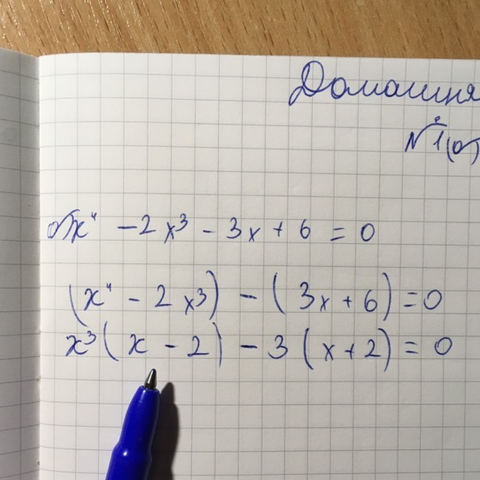 Домашня
№1(а)
а) x⁴ - 2x³ - 3x + 6 = 0
(x⁴ - 2x³) - (3x + 6) = 0
x³(x - 2) - 3(x + 2) = 0